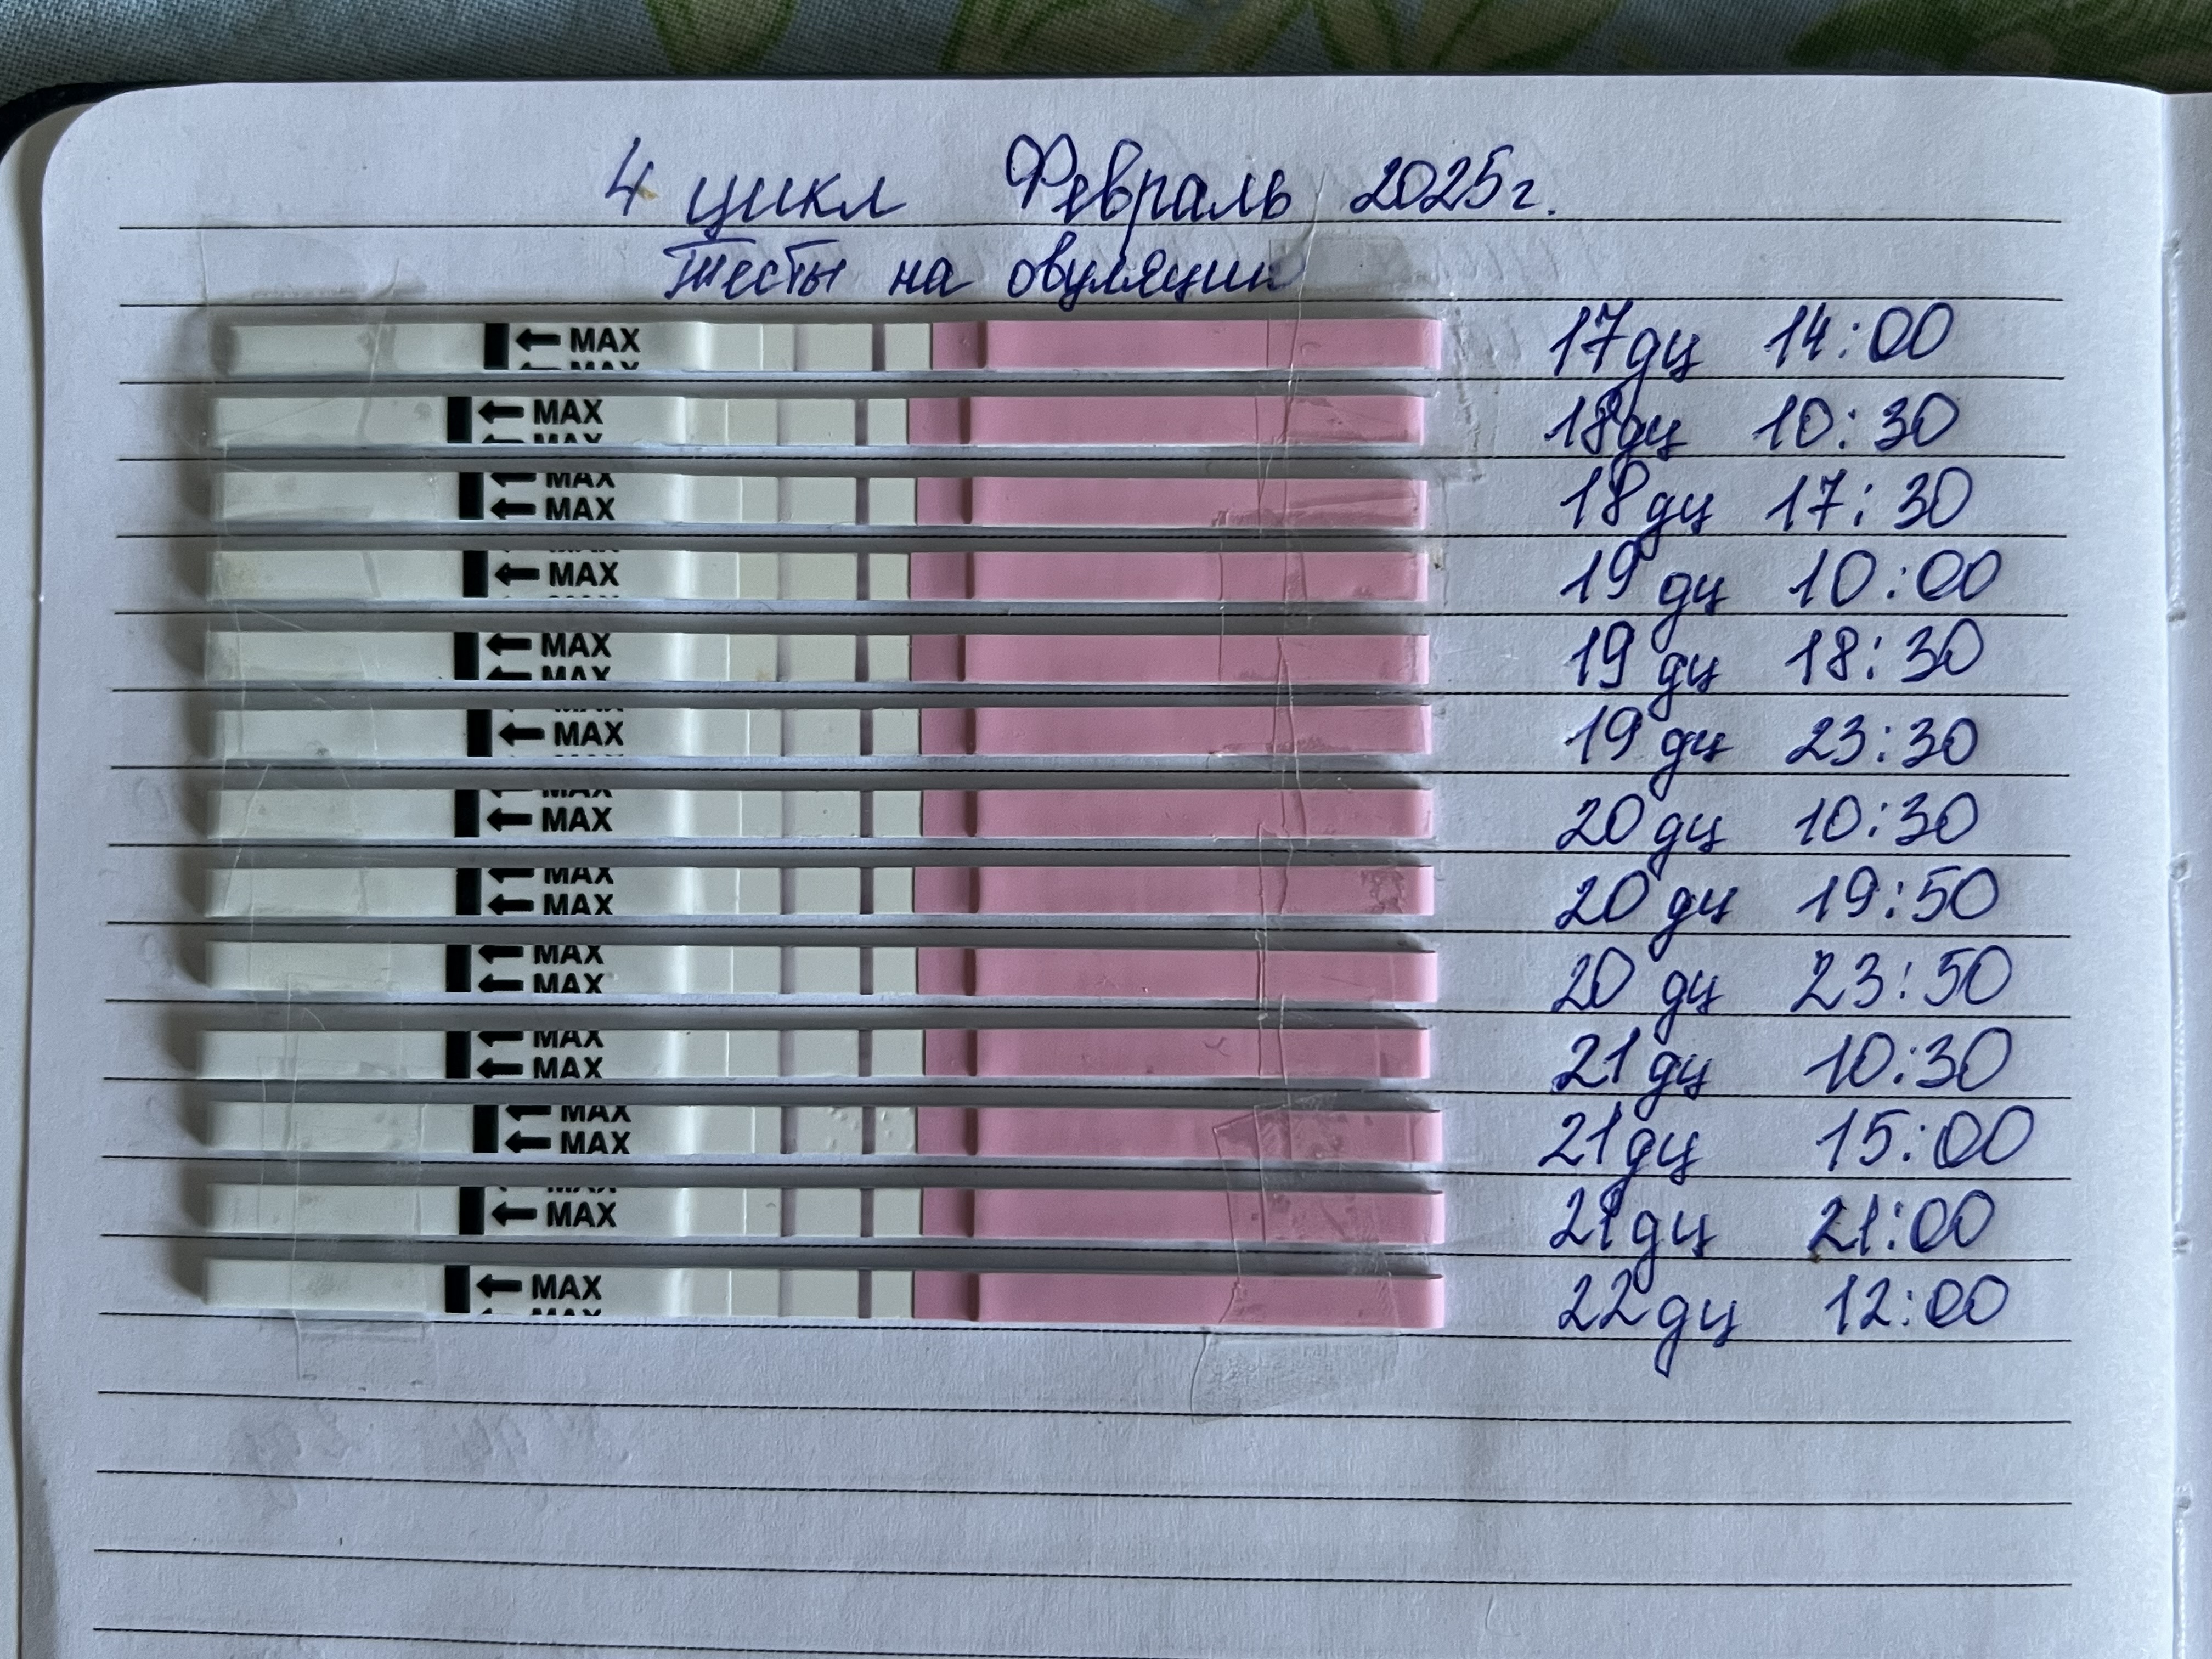 4 цикл Февраль 2025г.
Тесты на овуляцию
← MAX 17дц 14:00
← MAX 18дц 10:30
← MAX 18дц 17:30
← MAX 19 дц 10:00
← MAX 19 дц 18:30
← MAX 19 дц 23:30
← MAX 20 дц 10:30
← MAX 20 дц 19:50
← MAX 20 дц 23:50
← MAX 21 дц 10:30
← MAX 21дц 15:00
← MAX 21дц 21:00
← MAX 22дц 12:00